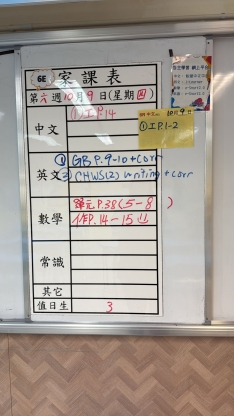 6E 家課表
第六週10月9日(星期四)
中文 (1)工P.14
10月9日
①工P.1-2
英文 ① GB P.9-10 + Corr
② CHWS(2) writing + corr
數學 單元P.38(5-8)
作P.14-15
常識
其它
值日生 3